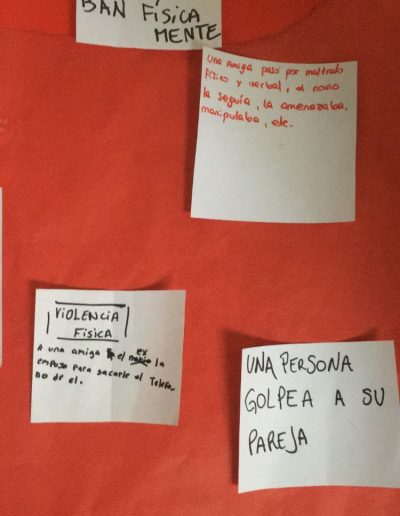 BAN FÍSICA
MENTE
Una Amiga pasó por maltrato
físico y verbal, el novio
la seguía, la amenazaba,
manipulaba, etc.
VIOLENCIA
FISICA
A una amiga el novio ex la
empujo para sacarle el Telefo_
no de el.
UNA PERSONA
GOLPEA A SU
PAREJA